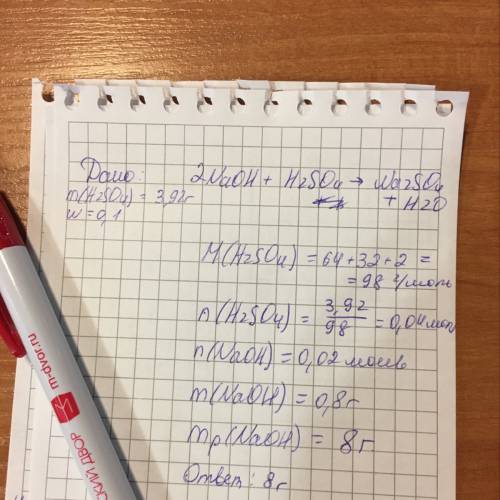 Дано:
m(H2SO4) = 3,92г
w = 0,1
2NaOH + H2SO4 → Na2SO4
+ H2O
M(H2SO4) = 64+32+2 =
= 98 г/моль
n(H2SO4) = 3,92/98 = 0,04моль
n(NaOH) = 0,02 моль
m(NaOH) = 0,8г
mр(NaOH) = 8г
Ответ: 8г
m-dvor.ru
ДВОР